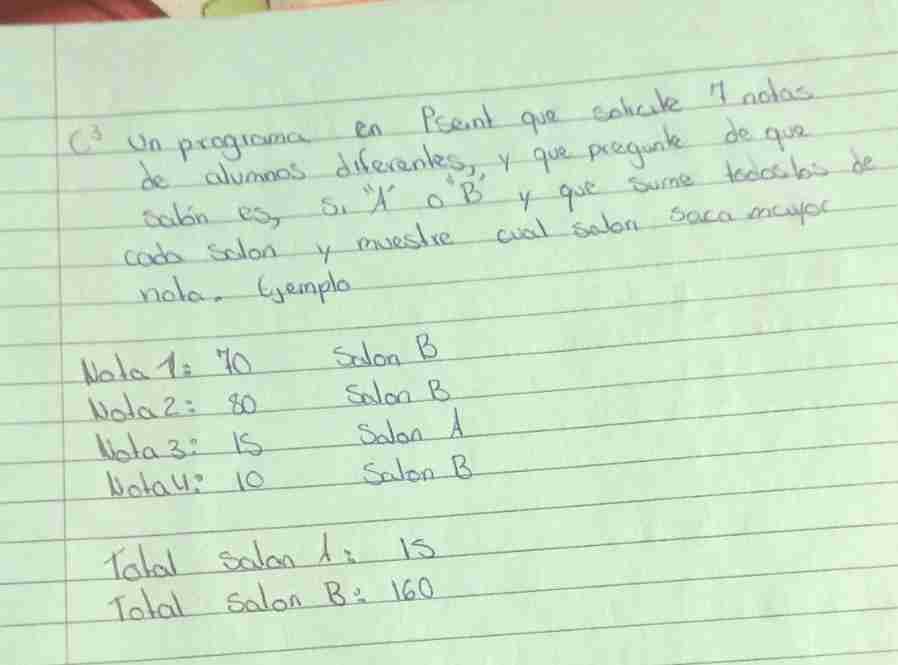 C³ Un programa en Pseint que solicite 7 notas
de alumnos diferentes, y que pregunte de que
salón es, si "A" o "B" y que sume todos los de
cada salon y muestre cual salon saca mayor
nota. Ejemplo
Nota 1: 70 Salon B
Nota 2: 80 Salon B
Nota 3: 15 Salon A
Nota 4: 10 Salon B
Total salon A: 15
Total salon B: 160